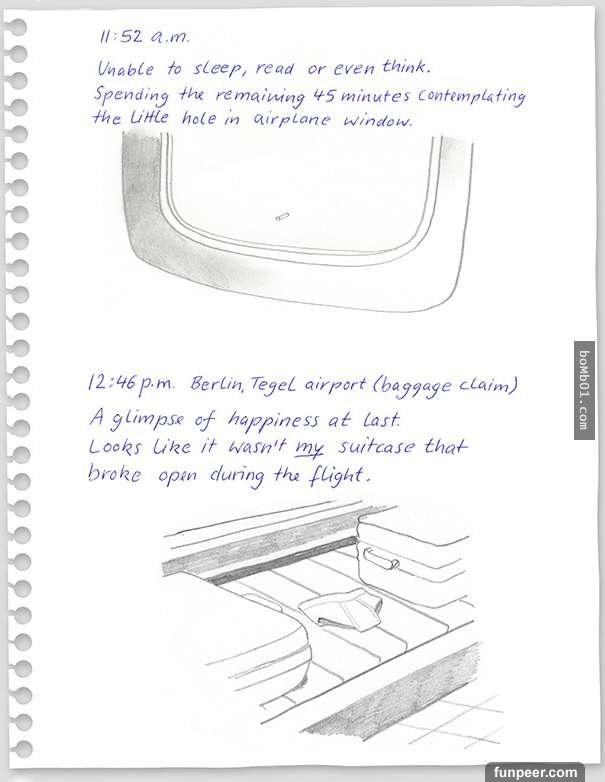 11:52 a.m.
Unable to sleep, read or even think.
Spending the remaining 45 minutes contemplating
the little hole in airplane window.
12:46 p.m. Berlin, Tegel airport (baggage claim)
A glimpse of happiness at last.
Looks like it wasn't my suitcase that
broke open during the flight.
boMb01.com
funpeer.com